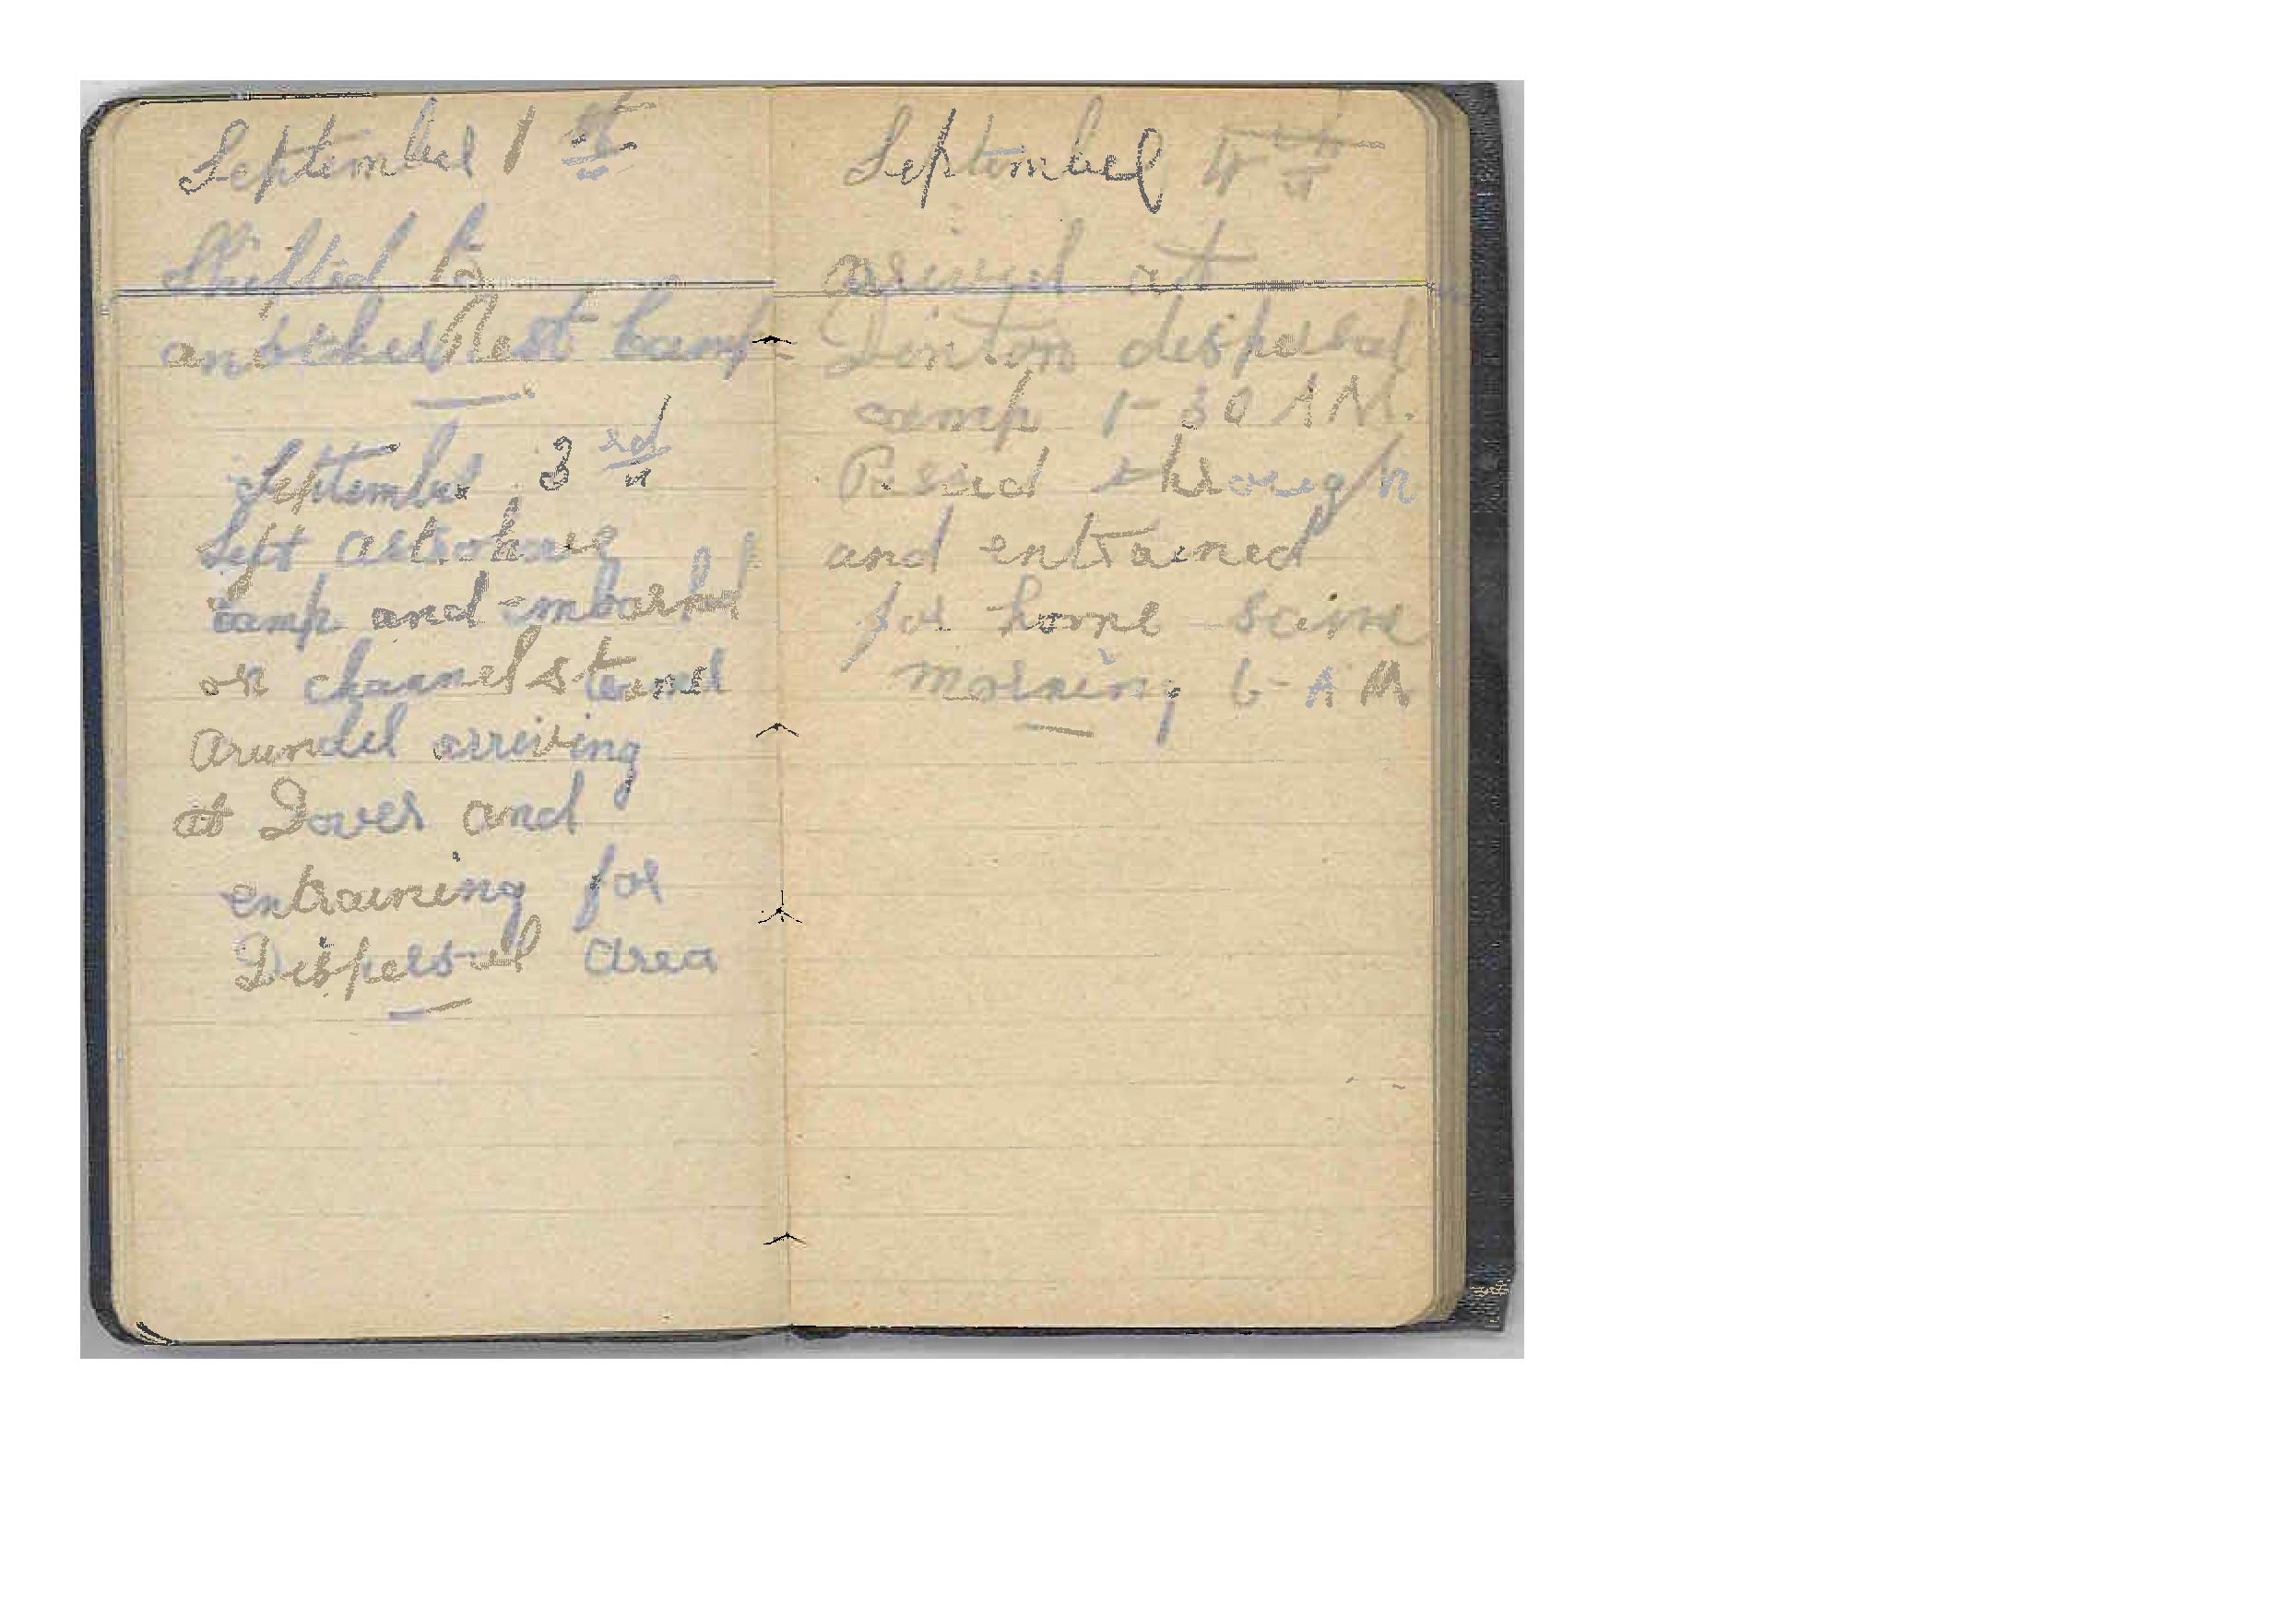 September 1st
Shifted to
another Rest Camp
September 3rd
Left
camp and embarked
on channel
Arundel arriving
at Dover and
entraining for
Dispersal area
September 4th
arrived at
Dinton dispersal
camp 1-30 AM.
Passed through
and entrained
for home same
morning 6-AM